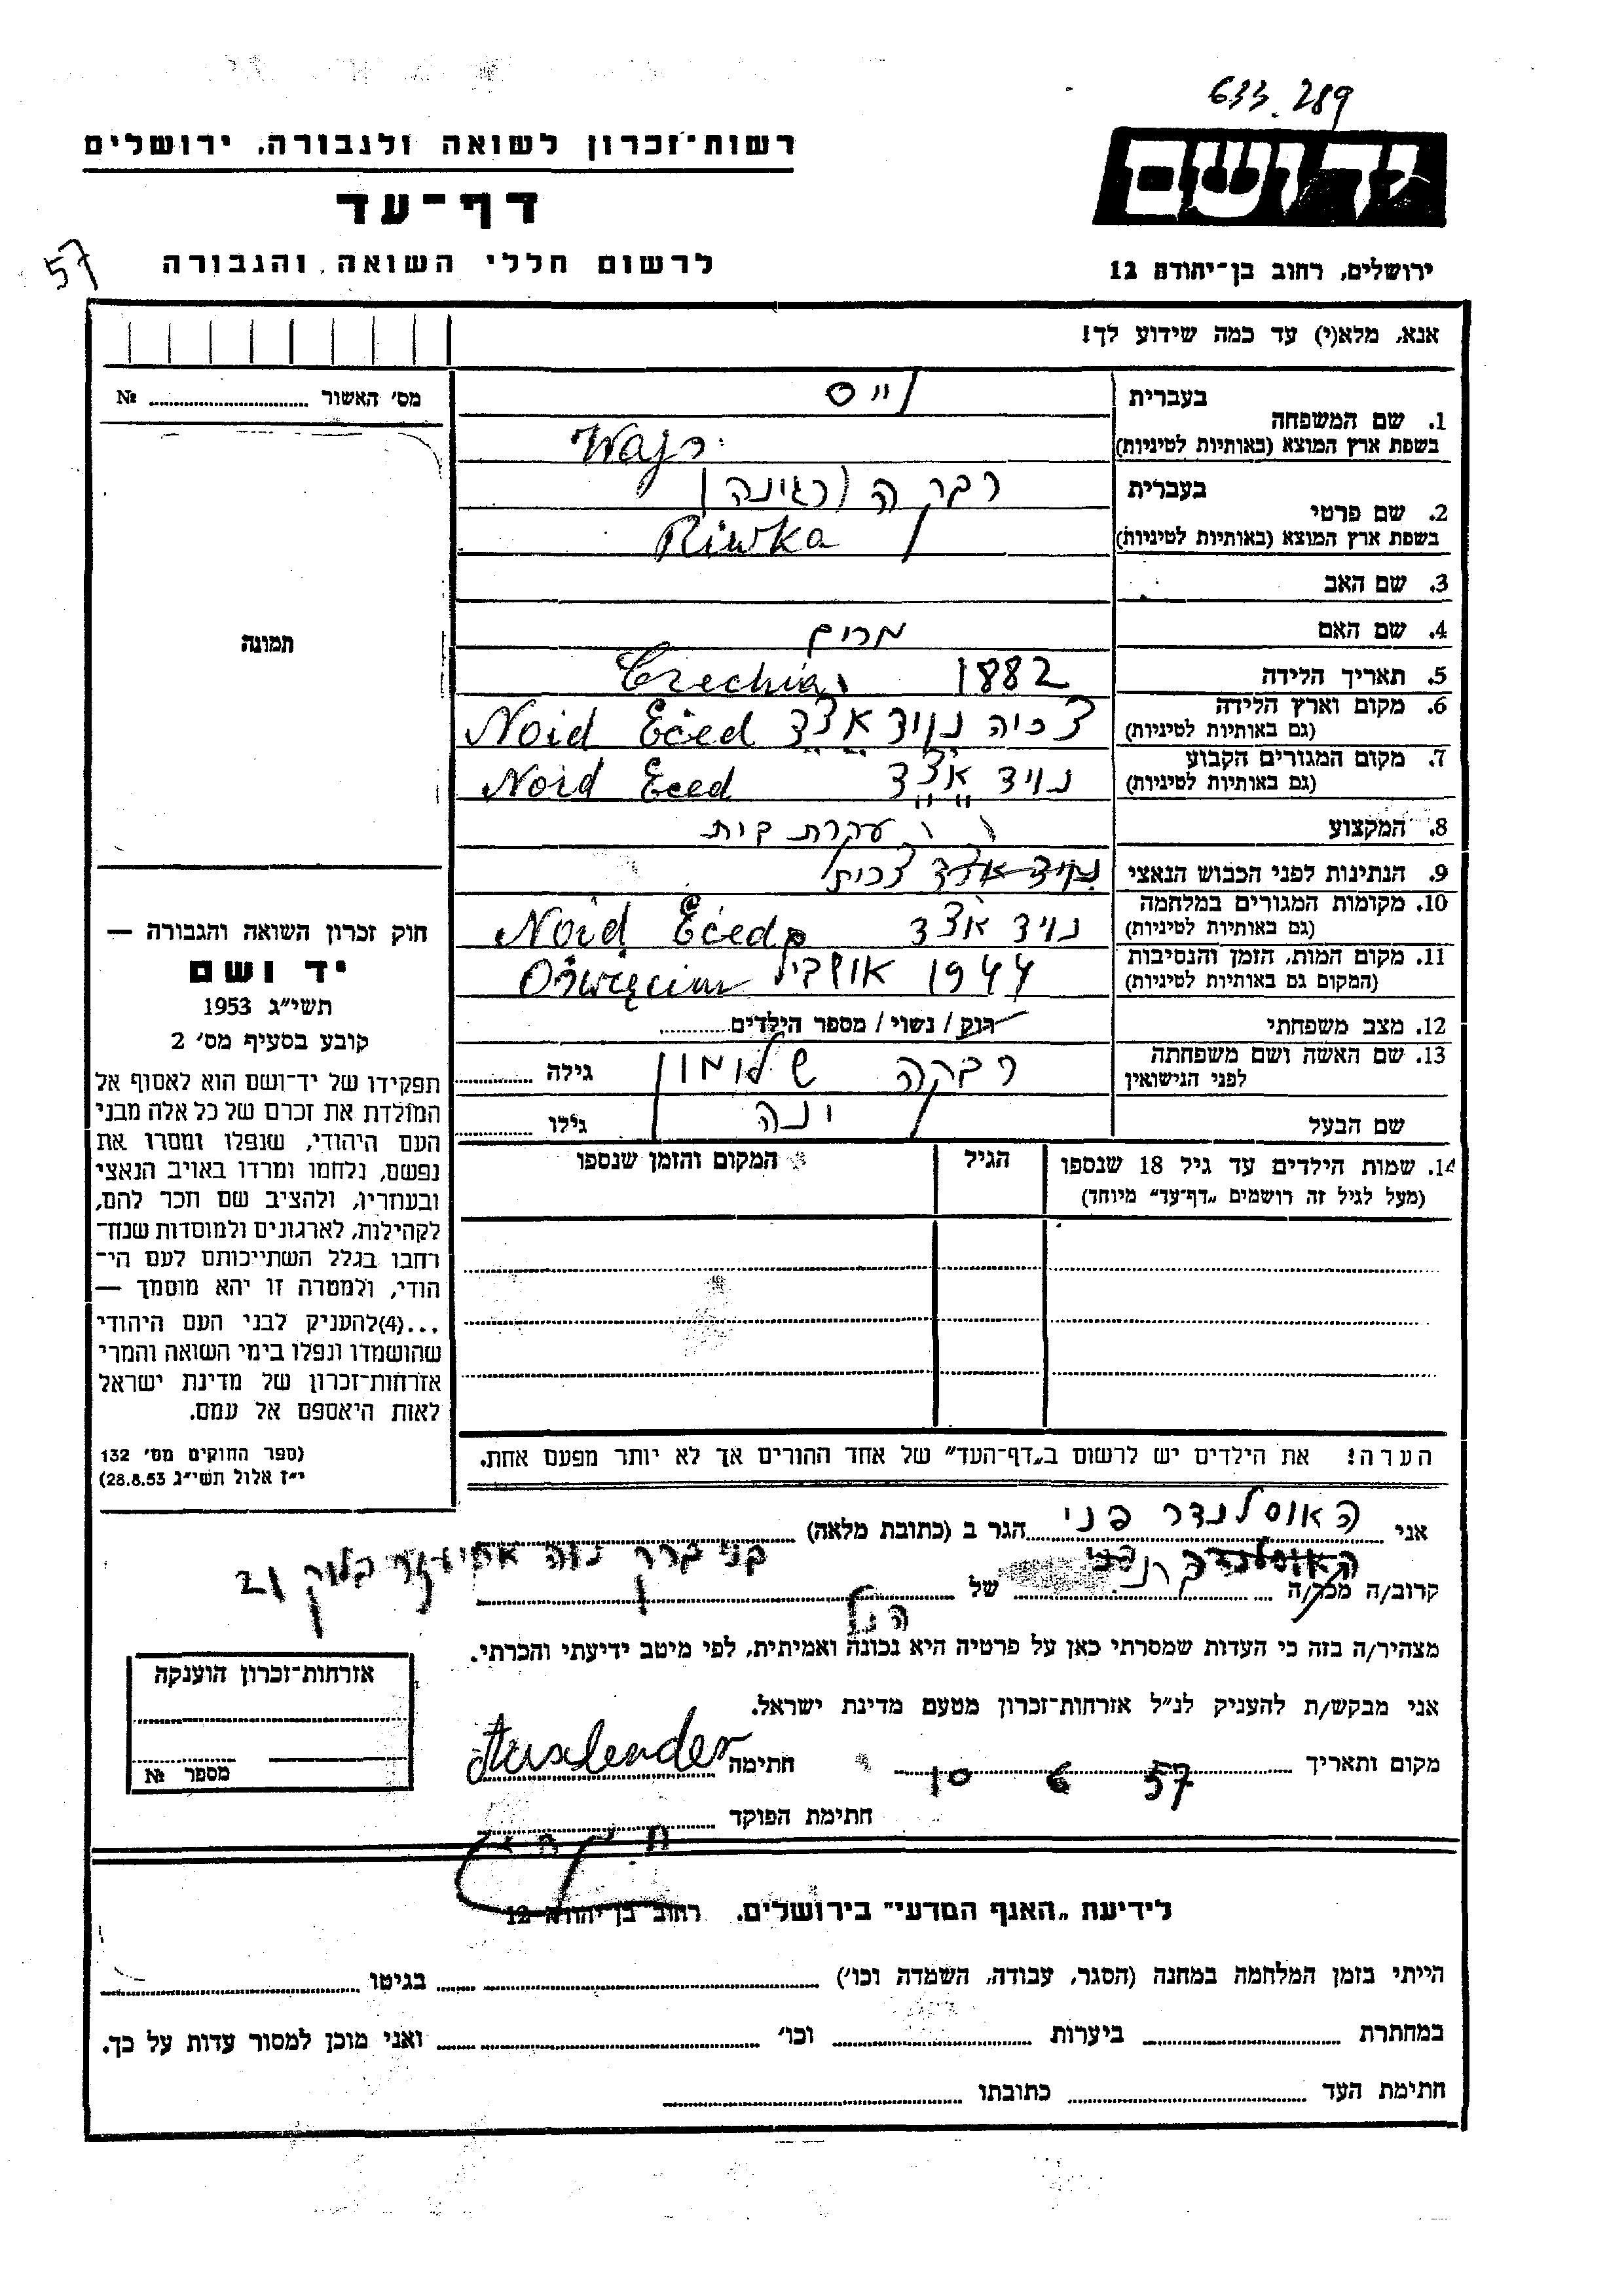 633.289
רשות־זכרון לשואה ולגבורה, ירושלים
יד ושם
דף־עד
57
לרשום חללי השואה והגבורה
ירושלים, רחוב בן־יהודה 12
אנא, מלא(י) עד כמה שידוע לך!
מס' האשור № 
תמונה
1. שם המשפחה
בעברית
וייס
בשפת ארץ המוצא (באותיות לטיניות)
Wajs
2. שם פרטי
בעברית
רבקה (רגינה)
בשפת ארץ המוצא (באותיות לטיניות)
Riwka
3. שם האב
4. שם האם מרים
5. תאריך הלידה 1882 Czechia
6. מקום וארץ הלידה
(גם באותיות לטיניות)
צ'כיה נויד אצד Noid Eced
7. מקום המגורים הקבוע
(גם באותיות לטיניות)
נויד אצד Noid Eced
8. המקצוע עקרת בית
9. הנתינות לפני הכבוש הנאצי נויד אצד צכית
10. מקומות המגורים במלחמה
(גם באותיות לטיניות)
נויד אצד Noid Eced
11. מקום המות, הזמן והנסיבות
(המקום גם באותיות לטיניות)
1944 Oświęcim
12. מצב משפחתי רוק / נשוי / מספר הילדים
13. שם האשה ושם משפחתה
לפני הנישואין
רבקה שלומון גילה
שם הבעל יונה גילו
14. שמות הילדים עד גיל 18 שנספו
(מעל לגיל זה רושמים „דף־עד" מיוחד)
הגיל
המקום והזמן שנספו
חוק זכרון השואה והגבורה —
יד ושם
תשי"ג 1953
קובע בסעיף מס' 2
תפקידו של יד־ושם הוא לאסוף אל
המולדת את זכרם של כל אלה מבני
העם היהודי, שנפלו ומסרו את
נפשם, נלחמו ומרדו באויב הנאצי
ובעוזריו, ולהציב שם וזכר להם,
לקהילות, לארגונים ולמוסדות שנח־
רבו בגלל השתייכותם לעם הי־
הודי, ולמטרה זו יהא מוסמך —
...(4)להעניק לבני העם היהודי
שהושמדו ונפלו בימי השואה והמרי
אזרחות־זכרון של מדינת ישראל
לאות היאספם אל עמם.
(ספר החוקים מס' 132
י"ז אלול תשי"ג 28.8.53)
הערה: את הילדים יש לרשום ב„דף־העד" של אחד ההורים אך לא יותר מפעם אחת.
אני האוסלנדר פני הגר ב (כתובת מלאה)
בני ברק נוה בלוק 21
קרוב/ה מכר/ה של
הנ"ל
מצהיר/ה בזה כי העדות שמסרתי כאן על פרטיה היא נכונה ואמיתית, לפי מיטב ידיעתי והכרתי.
אני מבקש/ת להעניק לנ"ל אזרחות־זכרון מטעם מדינת ישראל.
מקום ותאריך 10 6 57 חתימה Auslender
חתימת הפוקד
אזרחות־זכרון הוענקה
מספר №
לידיעת „האגף המדעי" בירושלים. רחוב בן־יהודה 12
הייתי בזמן המלחמה במחנה (הסגר, עבודה, השמדה וכו') בגיטו
במחתרת ביערות וכו' ואני מוכן למסור עדות על כך.
חתימת העד כתובתו